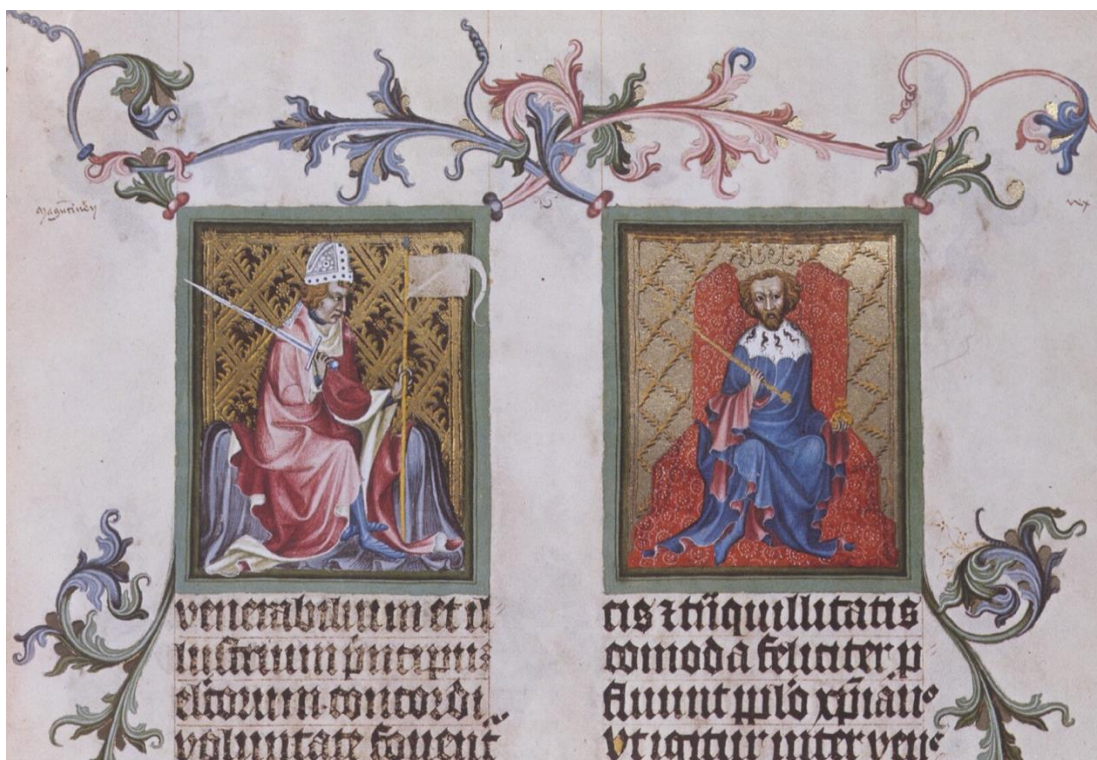 venerabilium et il
lustrium pͥncipum
elc̃orum concordi
voluntate fouent᷑
tis ⁊ tͣnquillitatis
comoda feliciter p
fluunt pplo xp̃iano
Vt igitur inter vene